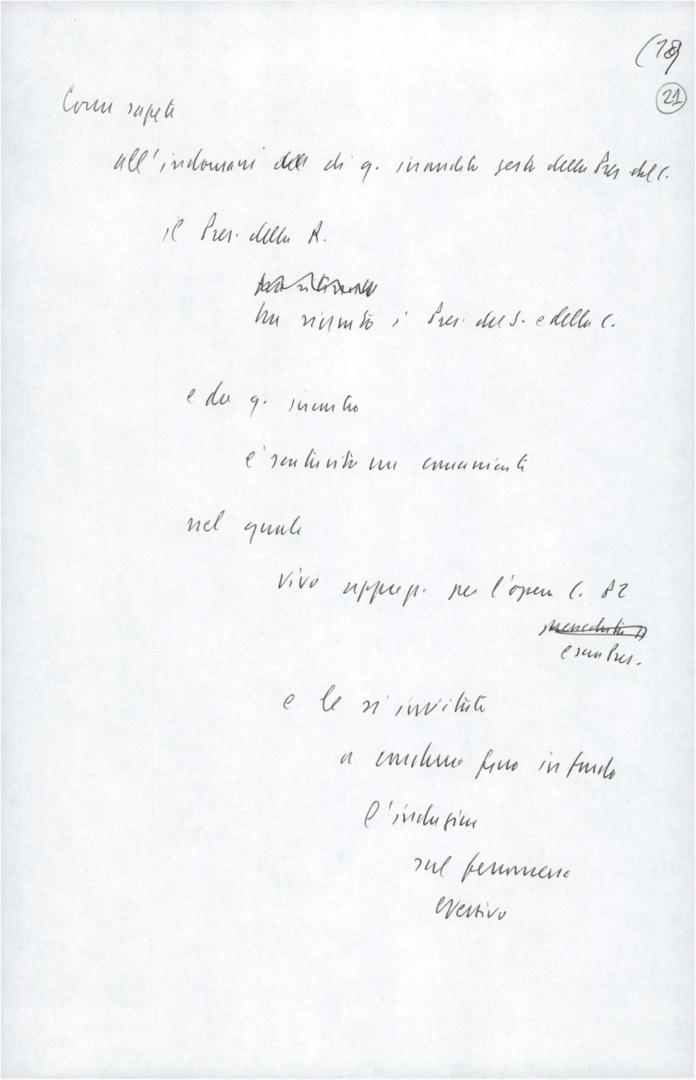 (18)
21
Come sapete
all'indomani di q. inaudito gesto della Pres del C.
il Pres. della R.
ha ricevuto i Pres. del S. e della C.
e da q. incontro
è scaturito un comunicato
nel quale
vivo apprezz. per l'opera C. P2
e sua Pres.
e le si invitata
a condurre fino in fondo
l'indagine
sul fenomeno
eversivo